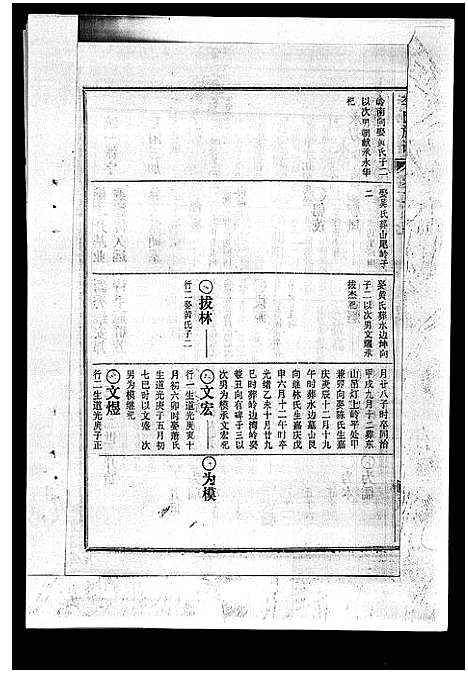 岭南向娶黄氏子二
以次男朝献承水华
祀
娶吴氏葬山尾岭子
二
娶黄氏葬水边坤向
子二以次男文耀承
拔杰祀
拔林
行二娶黄氏子二
月廿八子时卒同治
甲戌九月十二葬东
山吊灯上岭平处甲
兼卯向娶陈氏生嘉
庆庚辰十二月十九
午时葬水边墓山艮
向继林氏生嘉庆戊
申六月十二午时卒
光绪乙未十月廿九
巳时葬岭边湾岭娶
艮丑向有碑子三以
次男为模承文宏祀
文宏
为模
行一生道光庚寅十
月初六卯时娶萧氏
生道光庚子五月初
七巳时以文盛次
男为模继祀
文煜
行二生道光庚子正